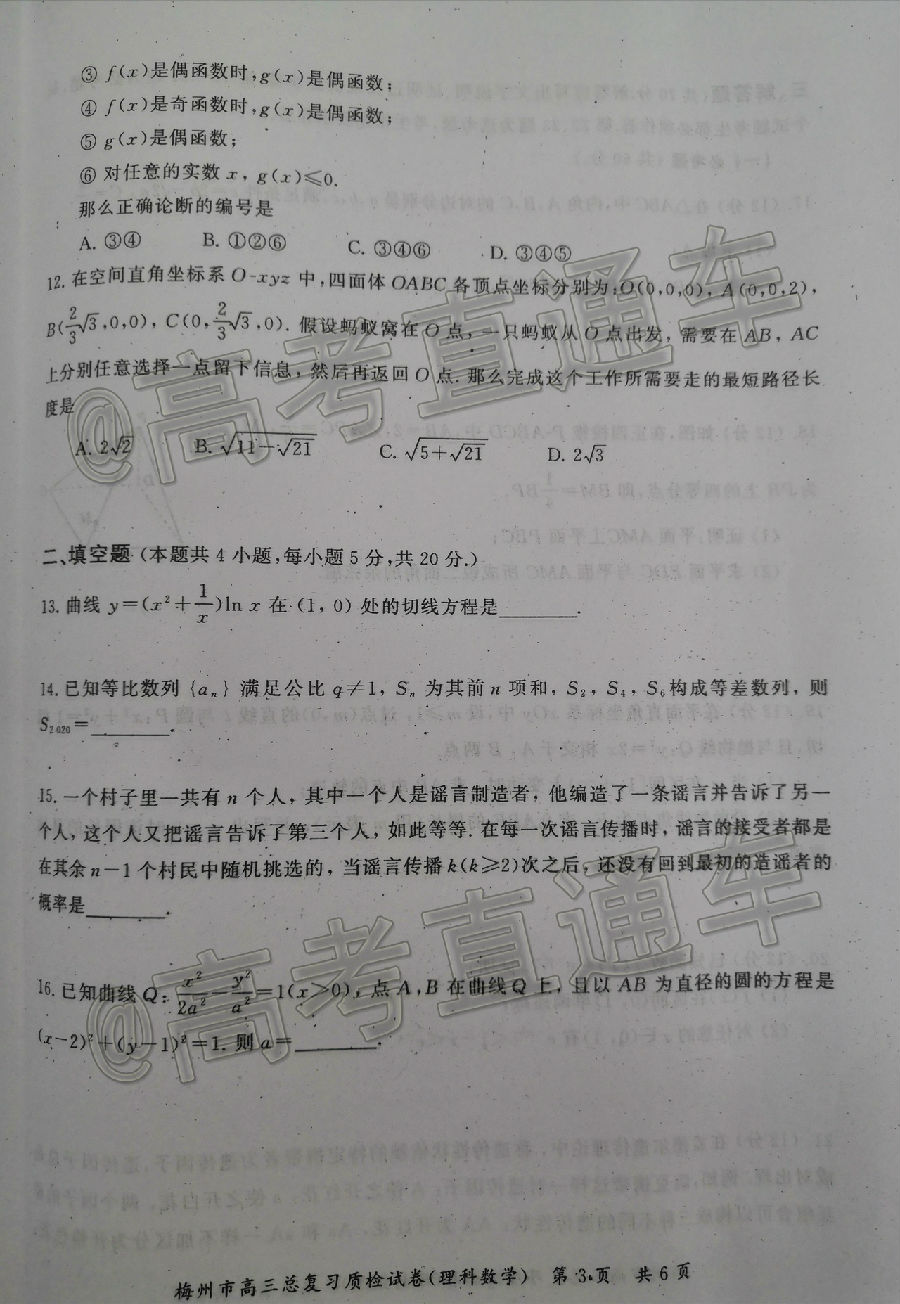 ③ f(x)是偶函数时,g(x)是偶函数;
④ f(x)是奇函数时,g(x)是偶函数;
⑤ g(x)是偶函数;
⑥ 对任意的实数 x, g(x)≤0.
那么正确论断的编号是
A. ③④ B. ①②⑥ C. ③④⑥ D. ③④⑤
12. 在空间直角坐标系 O-xyz 中,四面体 OABC 各顶点坐标分别为:O(0,0,0), A(0,0,2),
B(2/3√3,0,0), C(0,2/3√3,0). 假设蚂蚁窝在 O 点,一只蚂蚁从 O 点出发,需要在 AB, AC
上分别任意选择一点留下信息,然后再返回 O 点. 那么完成这个工作所需要走的最短路径长
度是
A. 2√2 B. √(11-√21) C. √(5+√21) D. 2√3
二、填空题 (本题共 4 小题,每小题 5 分,共 20 分.)
13. 曲线 y=(x²+1/x)ln x 在 (1, 0) 处的切线方程是________.
14. 已知等比数列 {aₙ} 满足公比 q≠1, Sₙ 为其前 n 项和, S₂, S₄, S₆ 构成等差数列,则
S₂₀₂₀=________.
15. 一个村子里一共有 n 个人,其中一个人是谣言制造者,他编造了一条谣言并告诉了另一
个人,这个人又把谣言告诉了第三个人,如此等等. 在每一次谣言传播时,谣言的接受者都是
在其余 n-1 个村民中随机挑选的,当谣言传播 k(k≥2)次之后,还没有回到最初的造谣者的
概率是________.
16. 已知曲线 Q: x²/2a²-y²/a²=1(x>0), 点 A, B 在曲线 Q 上,且以 AB 为直径的圆的方程是
(x-2)²+(y-1)²=1. 则 a=________.
梅州市高三总复习质检试卷(理科数学) 第 3 页 共 6 页
@高考直通车
@高考直通车